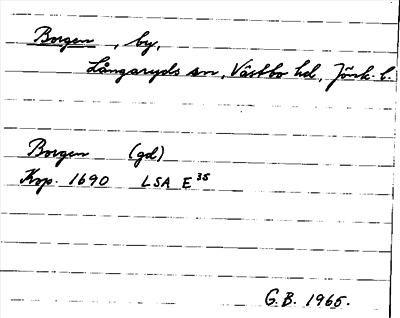 Borgen, by,
Långaryds sn, Västbo hd, Jönk. l.
Borgen (gd)
Krp. 1690 LSA E 35
G.B. 1965.